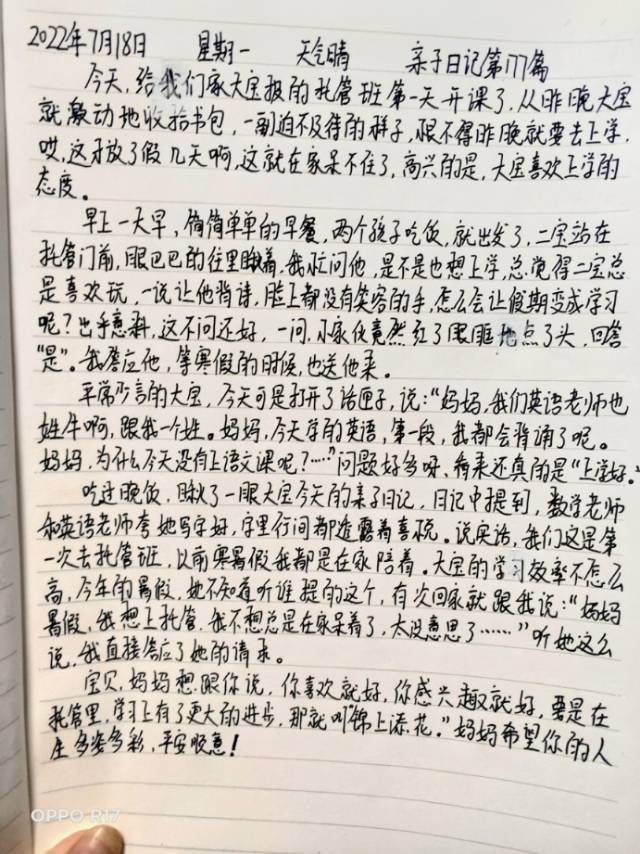 2022年7月18日 星期一 天气晴 亲子日记第177篇
今天,给我们家大宝报的托管班第一天开课了,从昨晚大宝
就激动地收拾书包,一副迫不及待的样子,恨不得昨晚就要去上学,
哎,这才放了假几天啊,这就在家呆不住了,高兴的是,大宝喜欢上学的
态度。
早上一大早,简简单单的早餐,两个孩子吃饭,就出发了,二宝站在
托管门前,眼巴巴的往里瞅着,我忙问他,是不是也想上学,总觉得二宝总
是喜欢玩,一说让他背诗,脸上都没有笑容的手,怎么会让假期变成学习
呢?出乎意料,这不问还好,一问,小家伙竟然红了眼眶地点了头,回答
"是"。我答应他,等寒假的时候,也送他来。
平常少言的大宝,今天可是打开了话匣子,说:"妈妈,我们英语老师也
姓牛啊,跟我一个姓。妈妈,今天学的英语,第一段,我都会背诵了呢。
妈妈,为什么今天没有上语文课呢?……"问题好多呀,看来还真的是"上学好。"
吃过晚饭,瞅了一眼大宝今天的亲子日记,日记中提到,数学老师
和英语老师夸她写字好,字里行间都透露着喜悦。说实话,我们这是第
一次去托管班,以前寒暑假我都是在家陪着。大宝的学习效率不怎么
高,今年的暑假,她不知道听谁提的这个,有次回家就跟我说:"妈妈
暑假,我想上托管,我不想总是在家呆着了,太没意思了……"听她这么
说,我直接答应了她的请求。
宝贝,妈妈想跟你说,你喜欢就好,你感兴趣就好,要是在
托管里,学习上有了更大的进步,那就叫"锦上添花。"妈妈希望你的人
生多姿多彩,平安顺意!
OPPO R17